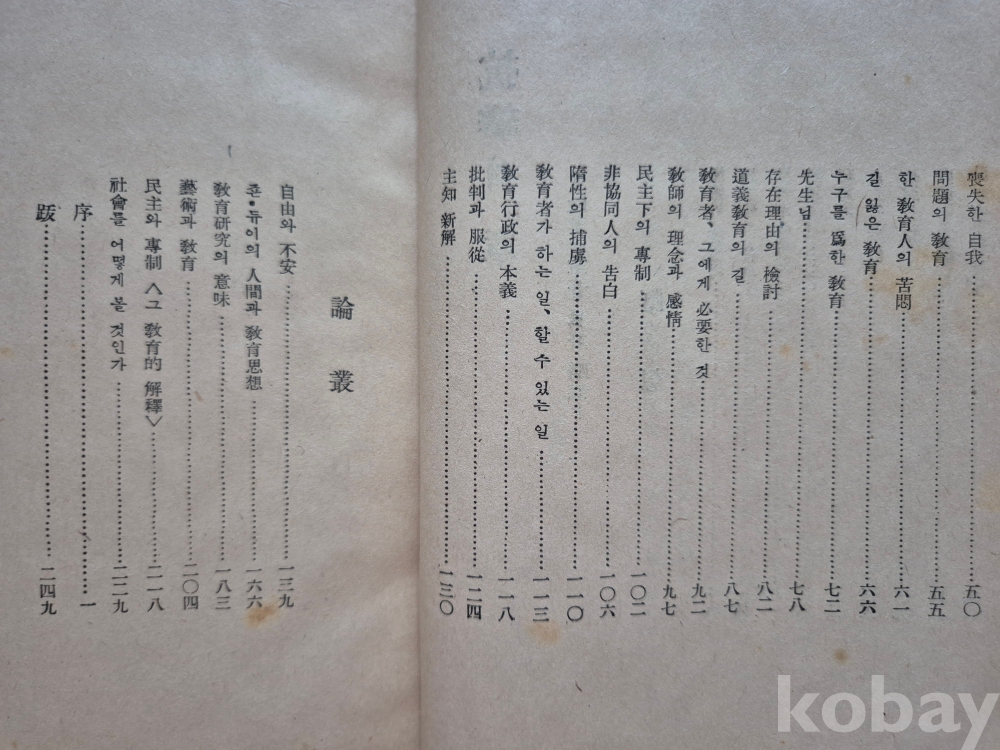 喪失한 自我……五〇
問題의 敎育……五五
한 敎育人의 苦悶……六一
길 잃은 敎育……六六
누구를 爲한 敎育……七二
先生님……七八
存在理由의 檢討……八二
道義敎育의 길……八七
敎育者、그에게 必要한 것……九二
敎師의 理念과 感情……九七
民主下의 專制……一〇二
非協同人의 告白……一〇六
隋性의 捕虜……一一〇
敎育者가 하는 일、할 수 있는 일……一一三
敎育行政의 本義……一一八
批判과 服從……一二四
主知 新解……一三〇
論叢
自由와 不安……一三九
죤•듀이의 人間과 敎育思想……一六六
敎育硏究의 意味……一八三
藝術과 敎育……二〇四
民主와 專制〈그 敎育的 解釋〉……二一八
社會를 어떻게 볼 것인가……二二九
序……一
跋……二四九
kobay